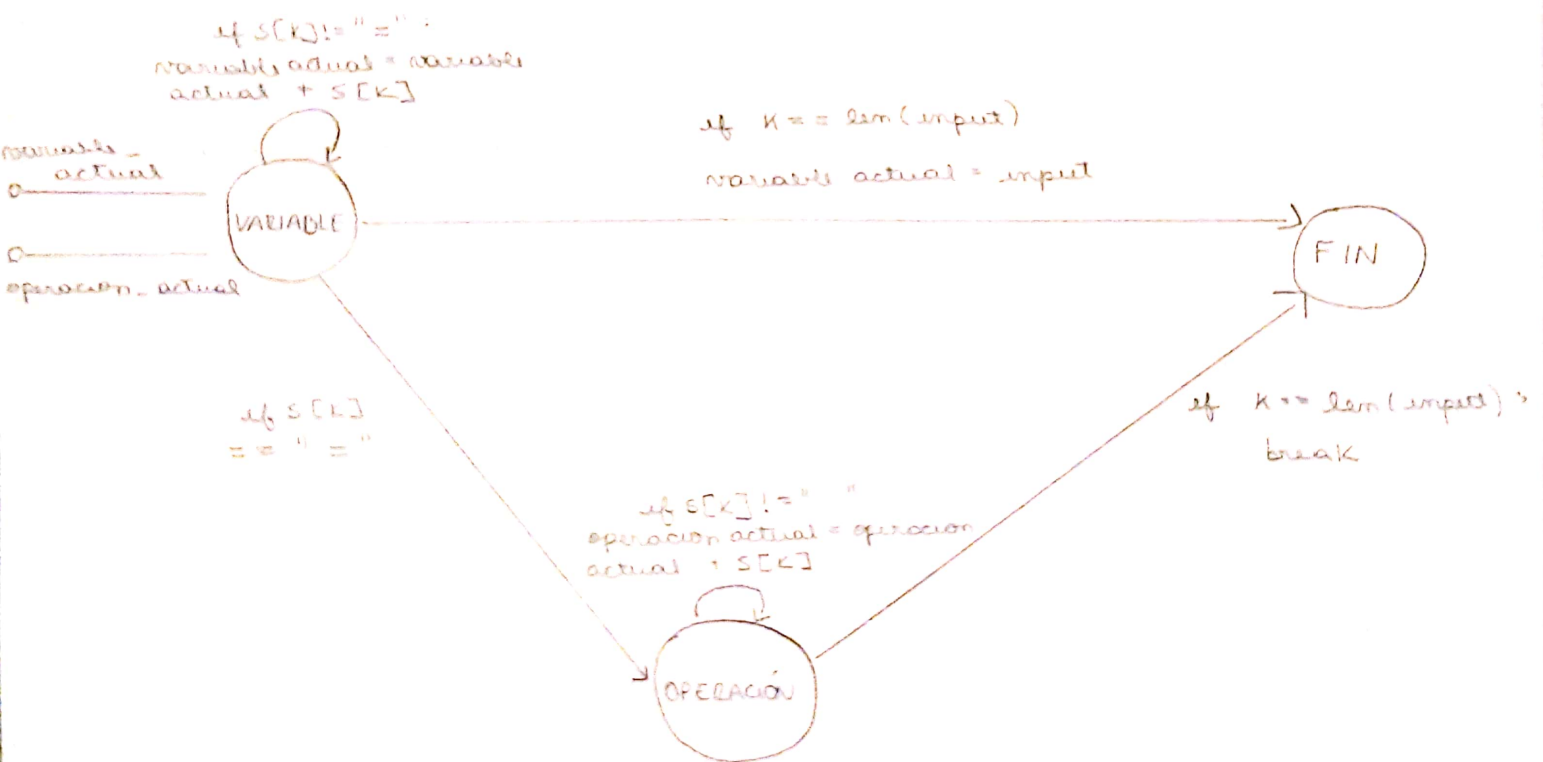 if S[K]!="=":
variable actual = variable
actual + S[K]
variable_
actual
VARIABLE
operacion_actual
if K == len(input)
variable actual = input
FIN
if S[K]
== "="
if K == len(input):
break
if S[K]!=" "
operacion actual = operacion
actual + S[K]
OPERACIÓN